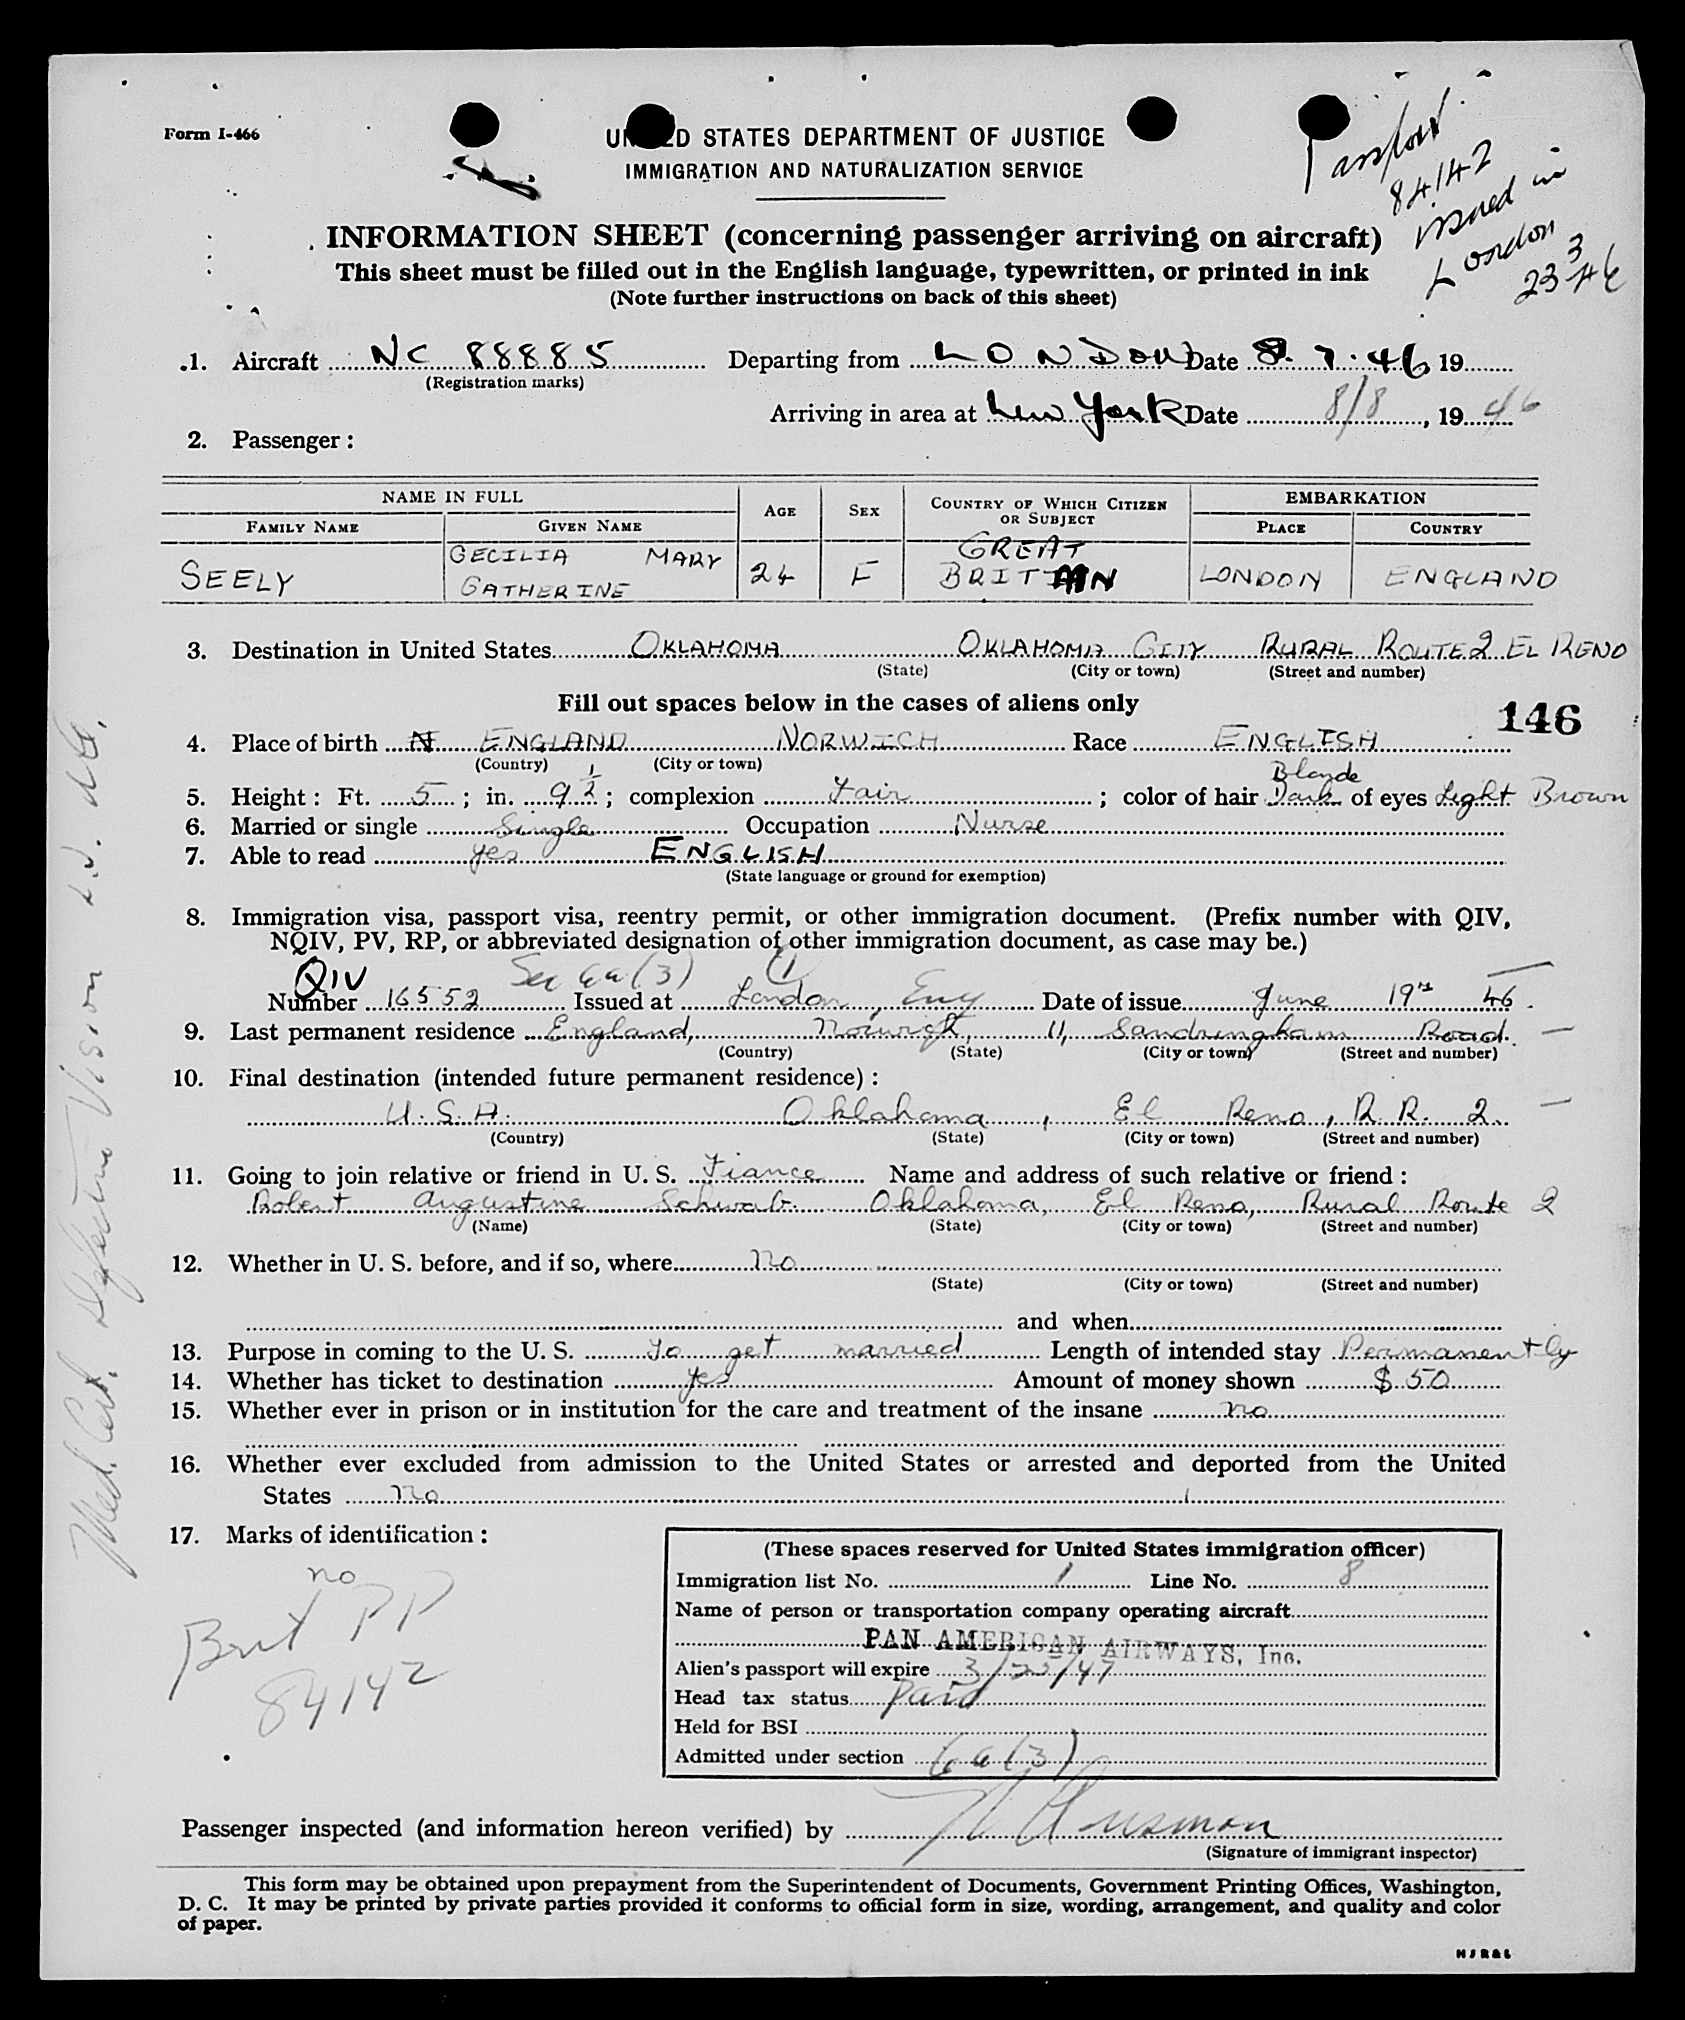 Form I-466
UNITED STATES DEPARTMENT OF JUSTICE
IMMIGRATION AND NATURALIZATION SERVICE
Passport
84142
issued in
London
23 3 46
INFORMATION SHEET (concerning passenger arriving on aircraft)
This sheet must be filled out in the English language, typewritten, or printed in ink
(Note further instructions on back of this sheet)
1. Aircraft NC 88885 Departing from LONDON Date 8.7.46, 19
(Registration marks)
Arriving in area at New York Date 8/8, 19 46
2. Passenger :
NAME IN FULL AGE SEX COUNTRY OF WHICH CITIZEN OR SUBJECT EMBARKATION
FAMILY NAME GIVEN NAME PLACE COUNTRY
SEELY CECILIA MARY CATHERINE 24 F GREAT BRITAIN LONDON ENGLAND
3. Destination in United States OKLAHOMA OKLAHOMA CITY RURAL ROUTE 2 EL RENO
(State) (City or town) (Street and number)
Fill out spaces below in the cases of aliens only
146
4. Place of birth N ENGLAND NORWICH Race ENGLISH
(Country) (City or town)
Blonde
5. Height : Ft. 5 ; in. 9 1/2 ; complexion Fair ; color of hair Dark of eyes Light Brown
6. Married or single Single Occupation Nurse
7. Able to read yes ENGLISH
(State language or ground for exemption)
8. Immigration visa, passport visa, reentry permit, or other immigration document. (Prefix number with QIV,
NQIV, PV, RP, or abbreviated designation of other immigration document, as case may be.)
QIV Sec 6a(3)
Number 16552 Issued at London, Eng Date of issue June 19th 46.
9. Last permanent residence England, Norwich, 11, Sandringham Road.
(Country) (State) (City or town) (Street and number)
10. Final destination (intended future permanent residence) :
U.S.A. Oklahoma, El Reno, R.R. 2.
(Country) (State) (City or town) (Street and number)
11. Going to join relative or friend in U. S. Fiance Name and address of such relative or friend :
Robert Augustine Schwab. Oklahoma, El Reno, Rural Route 2
(Name) (State) (City or town) (Street and number)
12. Whether in U. S. before, and if so, where no
(State) (City or town) (Street and number)
and when
13. Purpose in coming to the U. S. To get married Length of intended stay Permanently
14. Whether has ticket to destination yes Amount of money shown $50
15. Whether ever in prison or in institution for the care and treatment of the insane no
16. Whether ever excluded from admission to the United States or arrested and deported from the United
States no
17. Marks of identification :
no
Brit PP
84142
(These spaces reserved for United States immigration officer)
Immigration list No. 1 Line No. 8
Name of person or transportation company operating aircraft
PAN AMERICAN AIRWAYS, Inc.
Alien's passport will expire 3/23/47
Head tax status Paid
Held for BSI
Admitted under section 6a(3)
Passenger inspected (and information hereon verified) by
(Signature of immigrant inspector)
This form may be obtained upon prepayment from the Superintendent of Documents, Government Printing Offices, Washington,
D. C. It may be printed by private parties provided it conforms to official form in size, wording, arrangement, and quality and color
of paper.
Med. Cert. Defective Vision